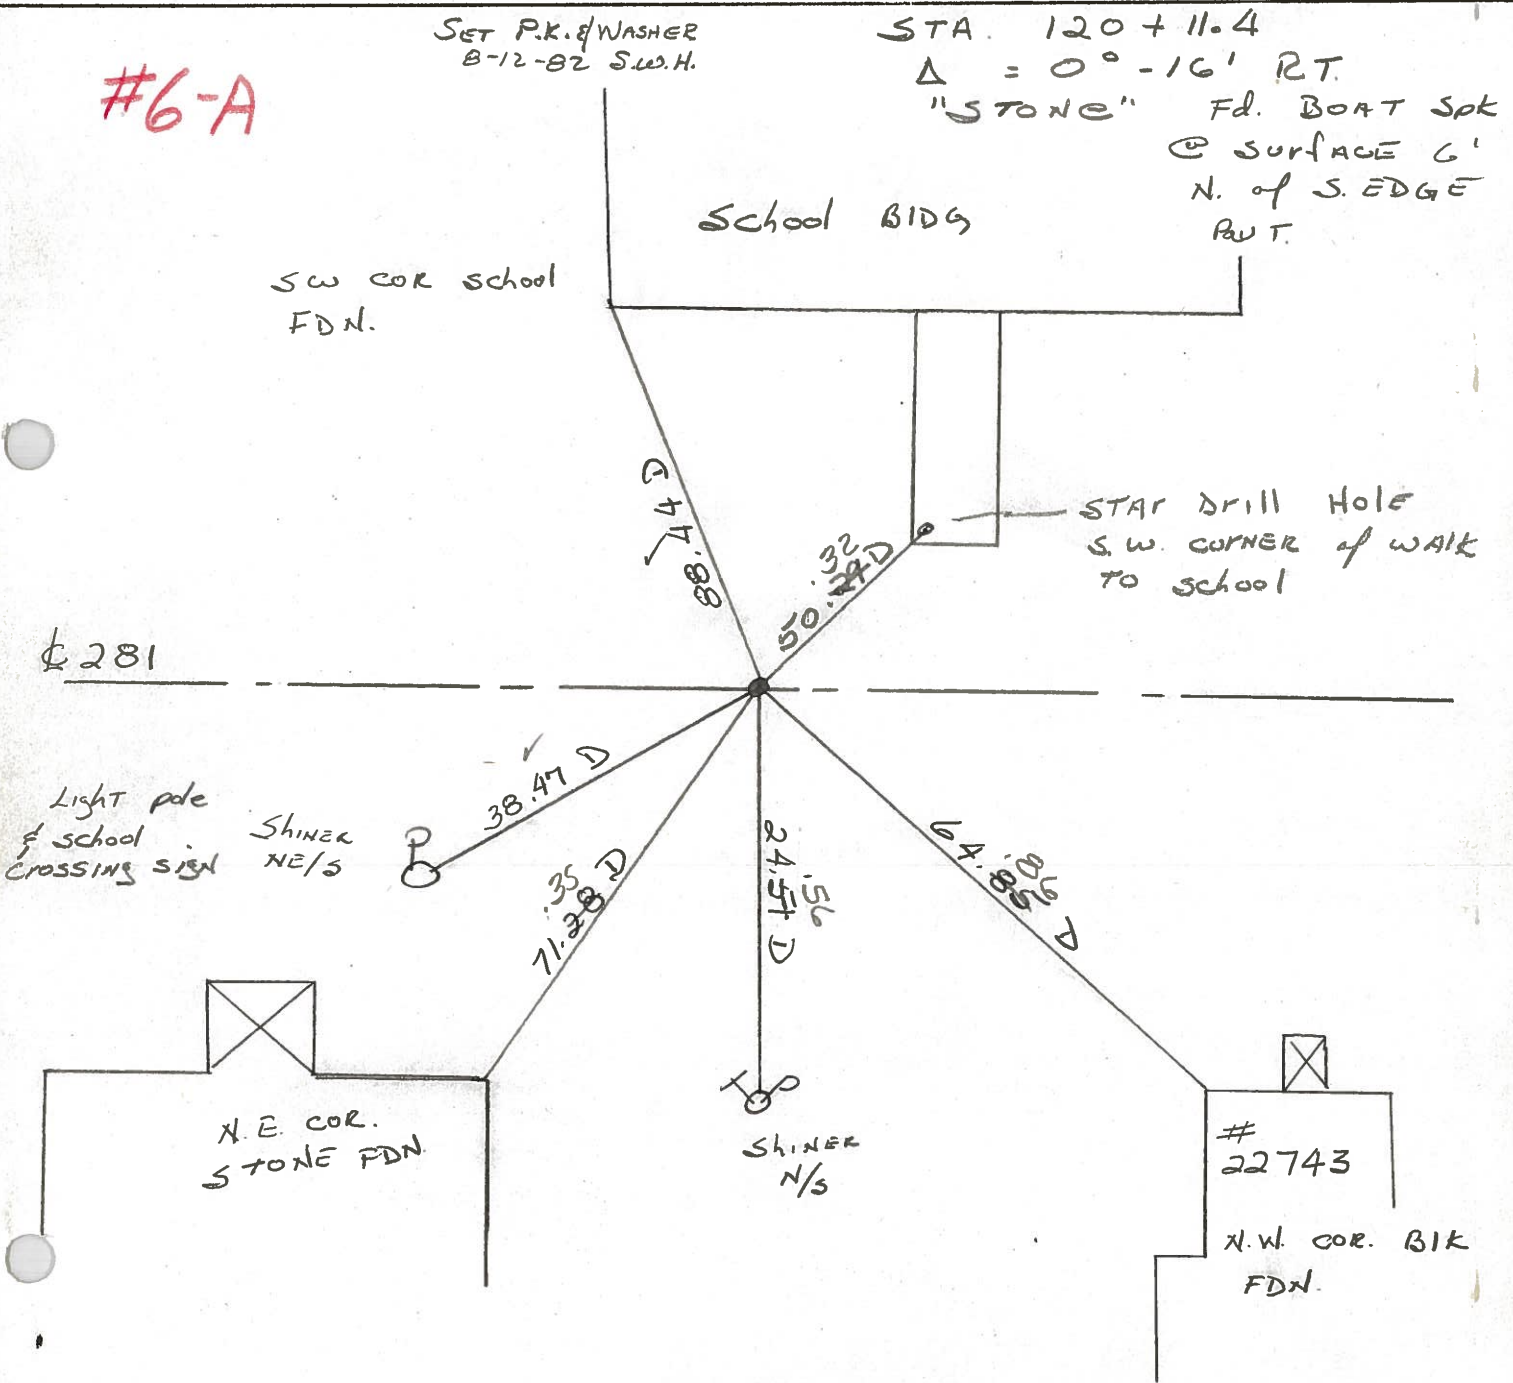 SET P.K. & WASHER
8-12-82 S.W.H.
#6-A
STA. 120 + 11.4
Δ = 0° -16' RT.
"STONE" Fd. BOAT Spk
@ SurfACE 6'
N. of S. EDGE
PavT.
School BlDG
SW COR School
FDN.
88.44 D
.32
50.29 D
STAr Drill Hole
S.W. CORNER of WAlk
TO School
℄ 281
38.47 D
LighT pole
& school
crossing sign
ShINER
NE/S
.35
71.28 D
.56
24.51 D
.86
64.85 D
N.E. COR.
STONE FDN.
ShINER
N/S
#
22743
N.W. COR. Blk
FDN.